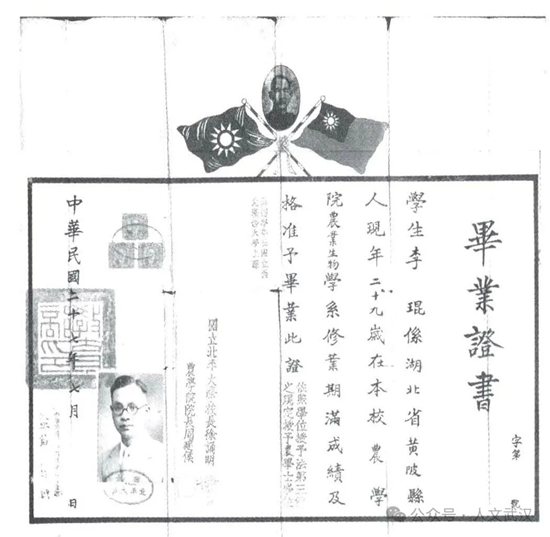 畢業證書
字第　號
學生李　琨係湖北省黃陂縣
人現年二十九歲在本校農學
院農業生物學系修業期滿成績及
格准予畢業此證
依照學位授予法第三條
之規定授予農學士學位
國立北平大學校長徐誦明
農學院院長周建侯
中華民國二十七年七月　日
公众号·人文武汉